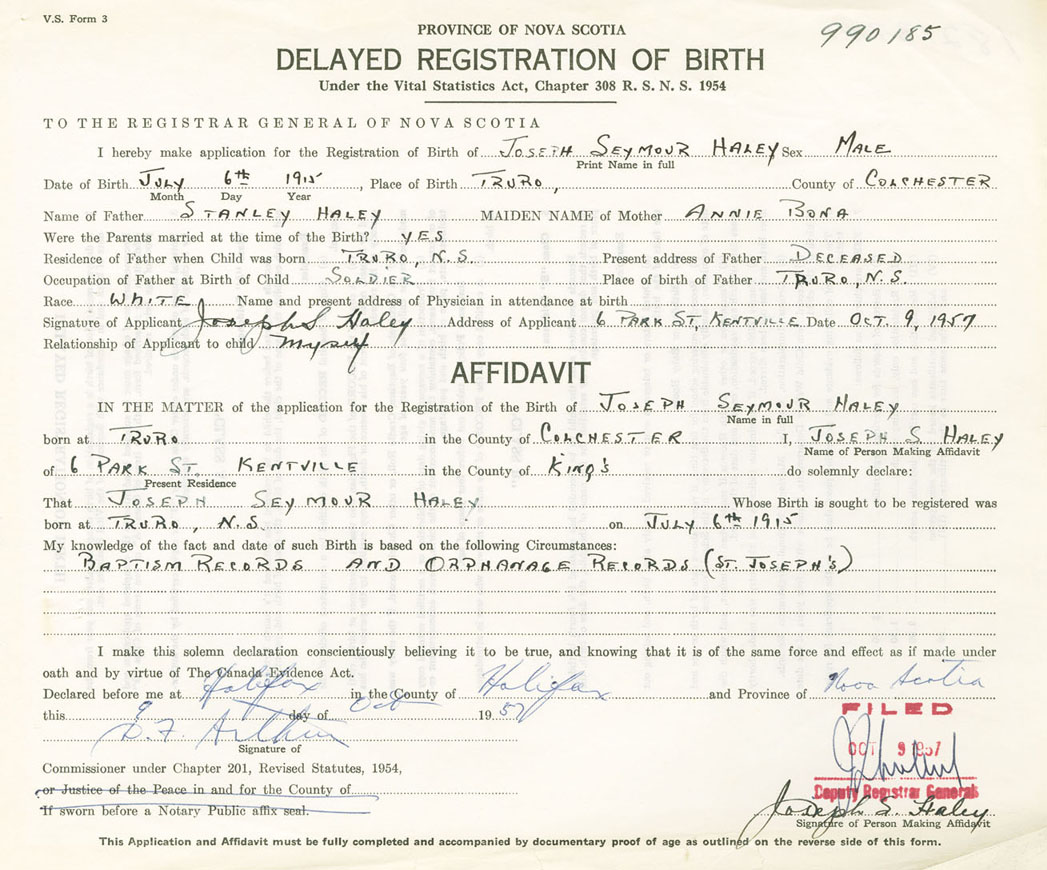 V.S. Form 3
990185
PROVINCE OF NOVA SCOTIA
DELAYED REGISTRATION OF BIRTH
Under the Vital Statistics Act, Chapter 308 R. S. N. S. 1954
TO THE REGISTRAR GENERAL OF NOVA SCOTIA
I hereby make application for the Registration of Birth of JOSEPH SEYMOUR HALEY Sex MALE
Print Name in full
Date of Birth JULY 6th 1915, Place of Birth TRURO, County of COLCHESTER
Month Day Year
Name of Father STANLEY HALEY MAIDEN NAME of Mother ANNIE BONA
Were the Parents married at the time of the Birth? YES
Residence of Father when Child was born TRURO, N.S. Present address of Father DECEASED
Occupation of Father at Birth of Child SOLDIER Place of birth of Father TRURO, N.S.
Race WHITE Name and present address of Physician in attendance at birth
Signature of Applicant Joseph S Haley Address of Applicant 6 PARK ST, KENTVILLE Date OCT. 9, 1957
Relationship of Applicant to child myself
AFFIDAVIT
IN THE MATTER of the application for the Registration of the Birth of JOSEPH SEYMOUR HALEY
Name in full
born at TRURO in the County of COLCHESTER I, JOSEPH S HALEY
Name of Person Making Affidavit
of 6 PARK ST. KENTVILLE in the County of KING'S do solemnly declare:
Present Residence
That JOSEPH SEYMOUR HALEY Whose Birth is sought to be registered was
born at TRURO, N.S. on JULY 6th 1915
My knowledge of the fact and date of such Birth is based on the following Circumstances:
BAPTISM RECORDS AND ORPHANAGE RECORDS (ST. JOSEPH'S)
I make this solemn declaration conscientiously believing it to be true, and knowing that it is of the same force and effect as if made under
oath and by virtue of The Canada Evidence Act.
Declared before me at Halifax in the County of Halifax and Province of Nova Scotia
this 9 day of Oct 1957
FILED
D. F. Arthur
Signature of
OCT 9 1957
Commissioner under Chapter 201, Revised Statutes, 1954,
or Justice of the Peace in and for the County of
Deputy Registrar General
If sworn before a Notary Public affix seal.
Joseph S. Haley
Signature of Person Making Affidavit
This Application and Affidavit must be fully completed and accompanied by documentary proof of age as outlined on the reverse side of this form.